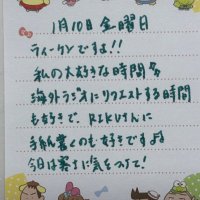 1月10日 金曜日
ウィークエンドですよ!!
私の大好きな時間
海外ラジオにリクエストする時間
も好きで RIKUさんに
手紙書くのも好きですよ
今日は寒さに気をつけて!